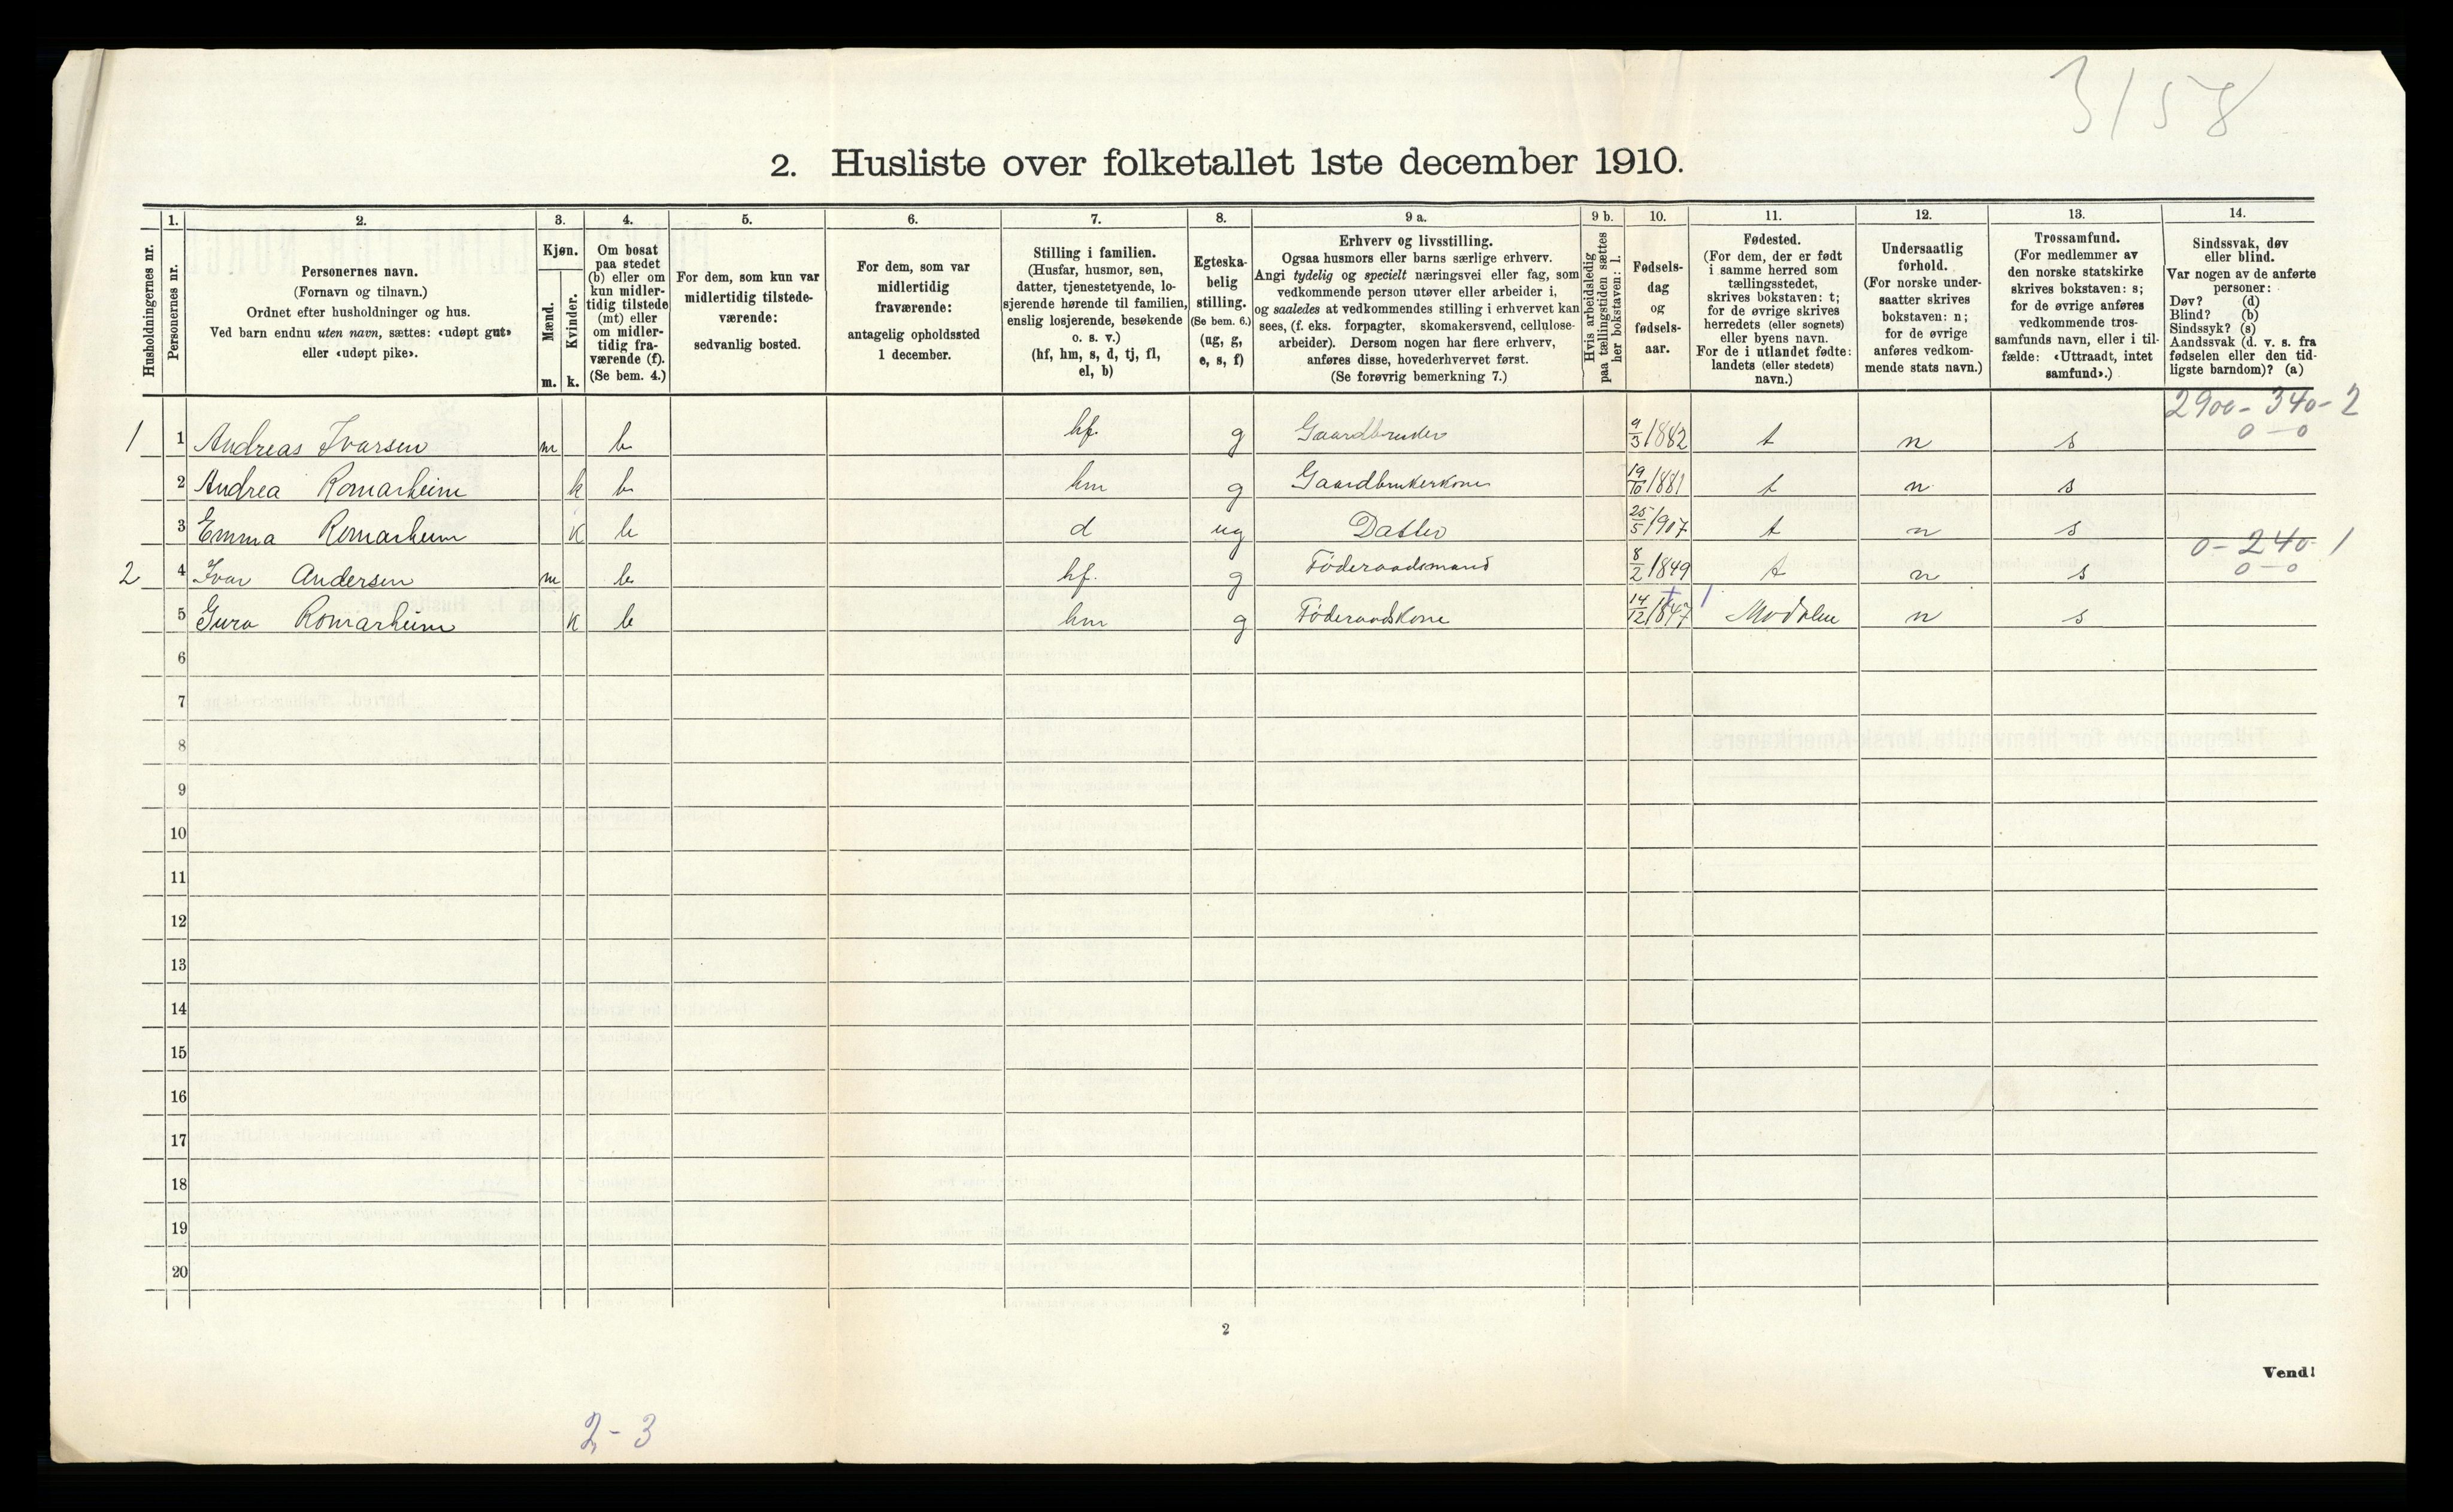 3/58
2. Husliste over folketallet 1ste december 1910.
1. 2. 3. 4. 5. 6. 7. 8. 9 a. 9 b. 10. 11. 12. 13. 14.
Husholdningernes nr.
Personernes nr.
Personernes navn.
(Fornavn og tilnavn.)
Ordnet efter husholdninger og hus.
Ved barn endnu uten navn, sættes: «udøpt gut»
eller «udøpt pike».
Kjøn.
Mænd.
Kvinder.
m. k.
Om bosat
paa stedet
(b) eller om
kun midler-
tidig tilstede
(mt) eller
om midler-
tidig fra-
værende (f).
(Se bem. 4.)
For dem, som kun var
midlertidig tilstede-
værende:
sedvanlig bosted.
For dem, som var
midlertidig
fraværende:
antagelig opholdssted
1 december.
Stilling i familien.
(Husfar, husmor, søn,
datter, tjenestetyende, lo-
sjerende hørende til familien,
enslig losjerende, besøkende
o. s. v.)
(hf, hm, s, d, tj, fl,
el, b)
Egteska-
belig
stilling.
(Se bem. 6.)
(ug, g,
e, s, f)
Erhverv og livsstilling.
Ogsaa husmors eller barns særlige erhverv.
Angi tydelig og specielt næringsvei eller fag, som
vedkommende person utøver eller arbeider i,
og saaledes at vedkommendes stilling i erhvervet kan
sees, (f. eks. forpagter, skomakersvend, cellulose-
arbeider). Dersom nogen har flere erhverv,
anføres disse, hovederhvervet først.
(Se forøvrig bemerkning 7.)
Hvis arbeidsledig
paa tællingstiden sættes
her bokstaven: l.
Fødsels-
dag
og
fødsels-
aar.
Fødested.
(For dem, der er født
i samme herred som
tællingsstedet,
skrives bokstaven: t;
for de øvrige skrives
herredets (eller sognets)
eller byens navn.
For de i utlandet fødte:
landets (eller stedets)
navn.)
Undersaatlig
forhold.
(For norske under-
saatter skrives
bokstaven: n;
for de øvrige
anføres vedkom-
mende stats navn.)
Trossamfund.
(For medlemmer av
den norske statskirke
skrives bokstaven: s;
for de øvrige anføres
vedkommende tros-
samfunds navn, eller i til-
fælde: «Uttraadt, intet
samfund».)
Sindssvak, døv
eller blind.
Var nogen av de anførte
personer:
Døv? (d)
Blind? (b)
Sindssyk? (s)
Aandssvak (d. v. s. fra
fødselen eller den tid-
ligste barndom)? (a)
2900 - 340 - 2
0 - 0
1 1 Andreas Ivarsen m b hf. g Gaardbruker 9/3 1882 t n s
2 Andrea Romarheim k b hm g Gaardbrukerkone 19/10 1881 t n s
3 Emma Romarheim k b d ug Datter 25/5 1907 t n s
0 - 240 - 1
0 - 0
2 4 Ivar Andersen m b hf. g Føderaadsmand 8/2 1849 t n s
5 Guro Romarheim k b hm g Føderaadskone 14/12 1847 Modalen n s
6
7
8
9
10
11
12
13
14
15
16
17
18
19
20
2
Vend!
2 - 3